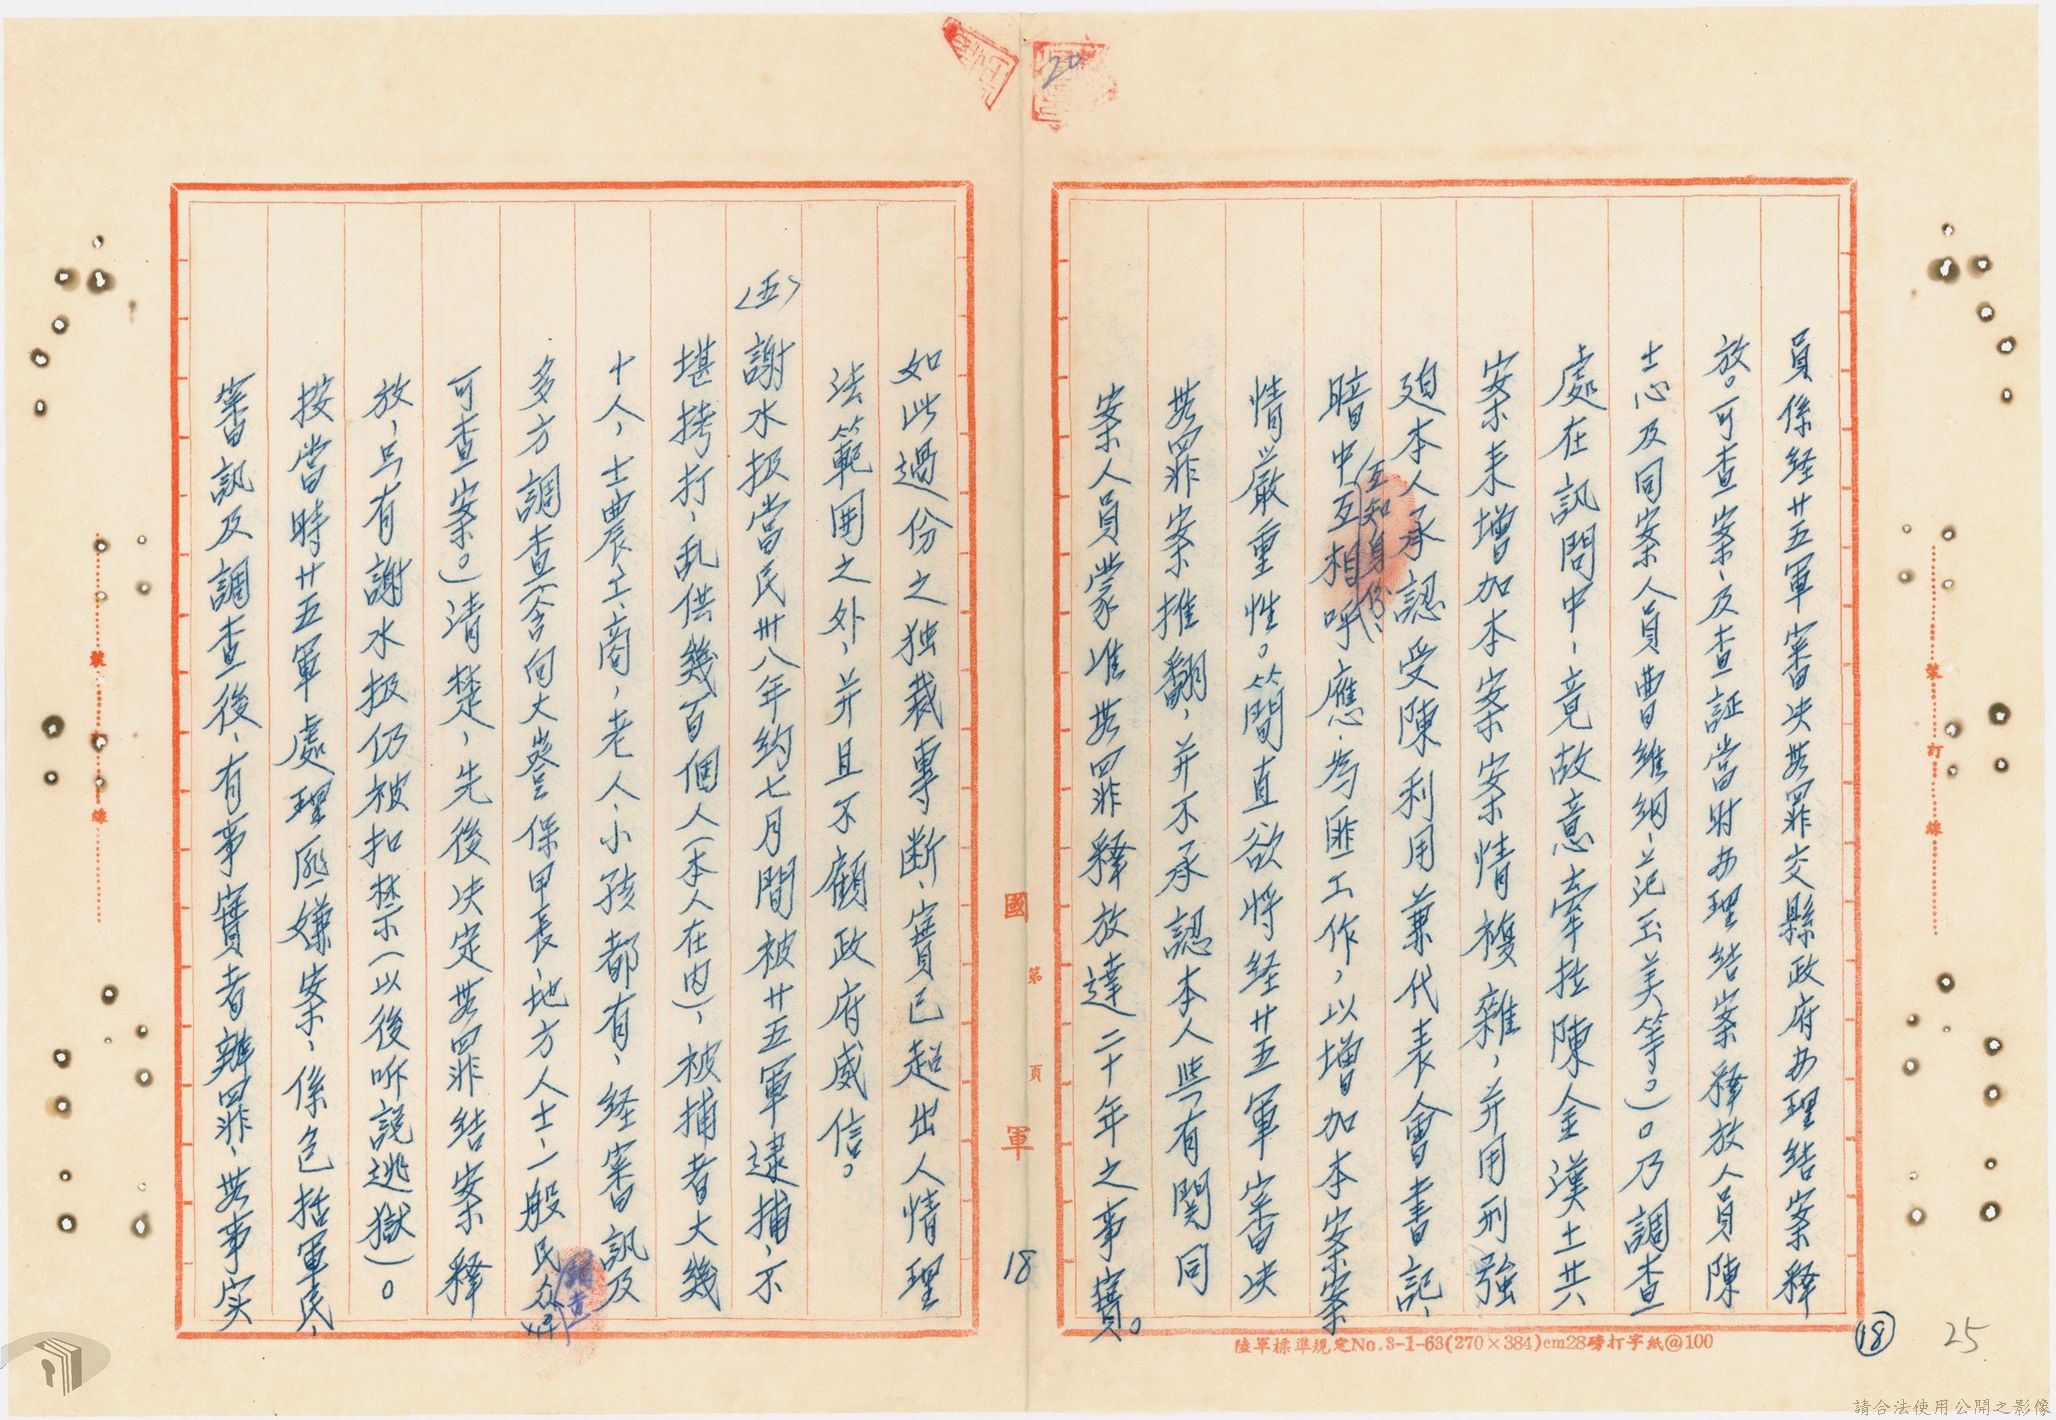 員係経廿五軍審决無罪交縣政府办理结案釋
放。可查案、及查証當財办理结案釋放人員陳
士心及同案人員曹維綱、范玉美等。）。乃調查
處在訊問中、竟故意牽拉陳金漢土共
案来增加本案案情複雜，并用刑強
廹本人承認受陳利用兼代表會書記、
暗中互相呼應、為匪工作，以增加本案案
互知身份、
情嚴重性。簡直欲將経廿五軍審决
無罪案推翻，并不承認本人無有関同
案人員蒙准無罪釋放達二十年之事實。
如此過份之独裁專断、實已超出人情理
法範囲之外、并且不顧政府威信。
〈五〉謝水扱當民卅八年約七月間被廿五軍逮捕，不
堪拷打，乱供幾百個人（本人在内），被捕者大幾
十人，士農工、商，老人、小孩都有、経審訊及
多方調查（含向大嵙保甲長、地方人士、一般民众
可查案。）清楚，先後决定無罪结案釋
放，只有謝水扱仍被扣禁（以後听説逃獄）。
按當時廿五軍處理匪嫌案、係包括軍民、
審訊及調查後、有事實者辦罪、無事实
國軍
第 頁
18
20
裝 訂 線
裝 訂 線
陸軍標準規定No.3-1-63(270×384)cm28磅打字紙@100
18
25
請合法使用公開之影像